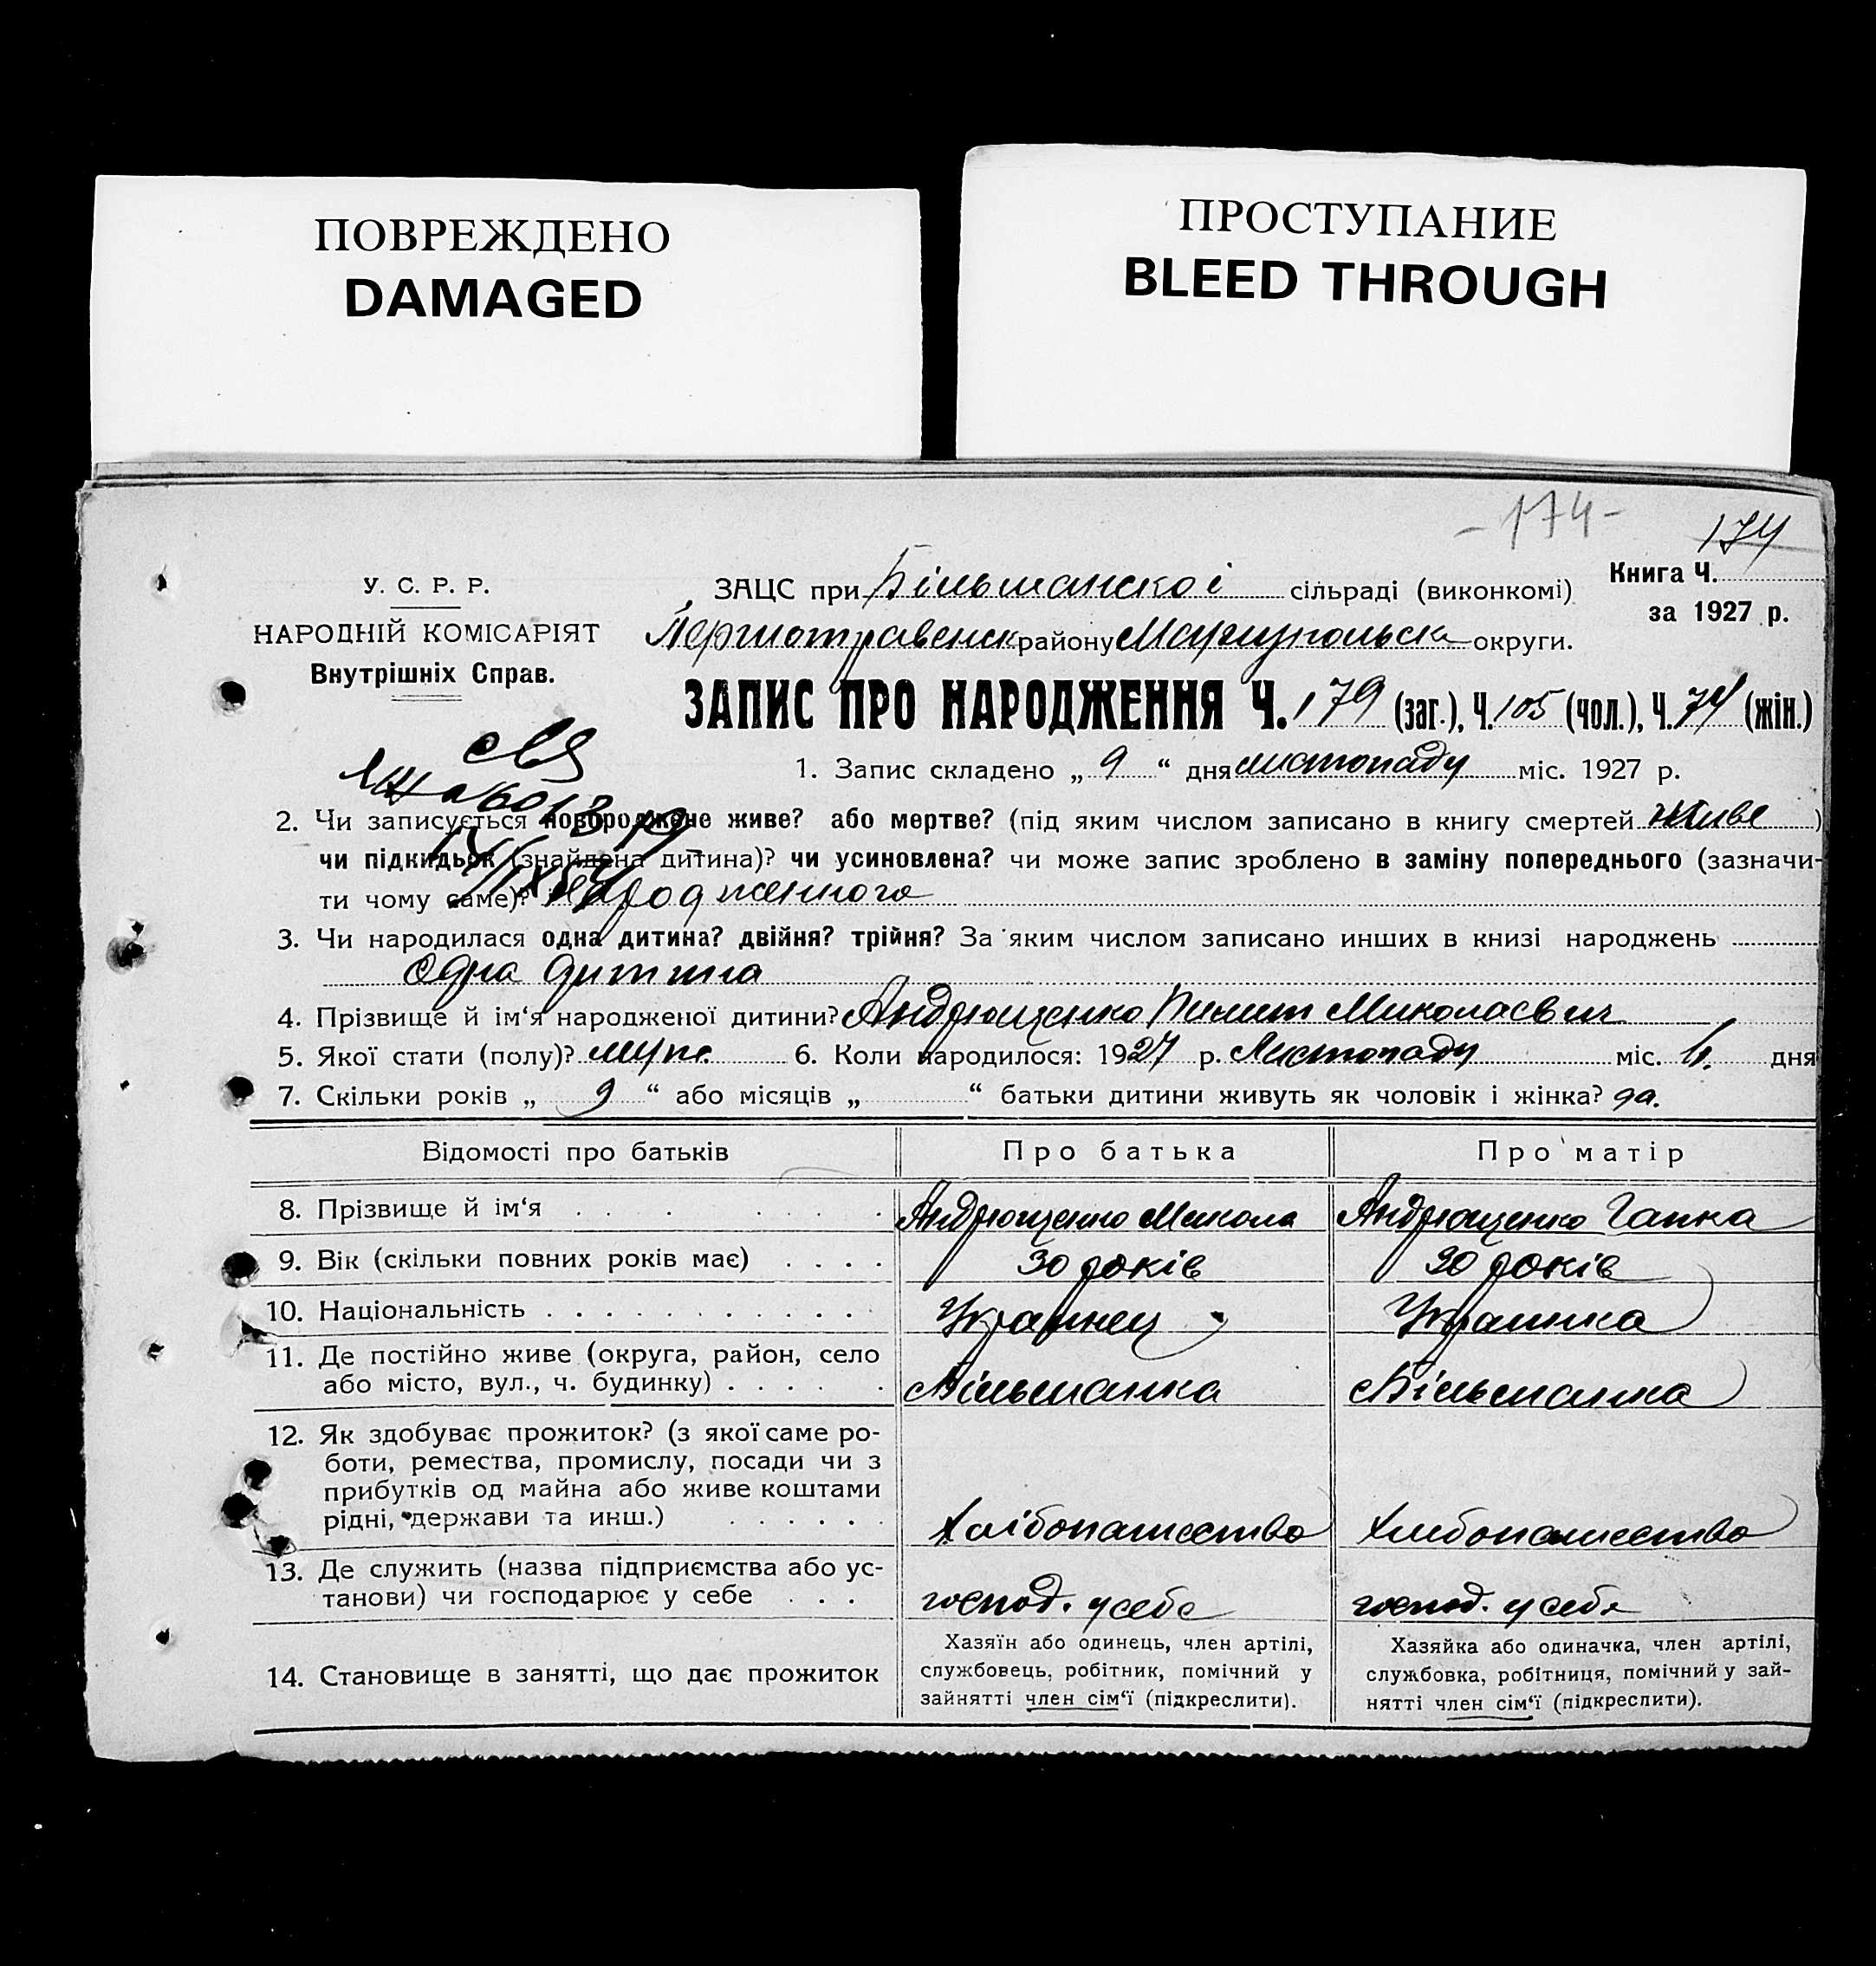 ПОВРЕЖДЕНО
DAMAGED
ПРОСТУПАНИЕ
BLEED THROUGH
- 174 -
174
Книга Ч.
за 1927 р.
У. С. Р. Р.
НАРОДНІЙ КОМІСАРІЯТ
Внутрішніх Справ.
ЗАЦС при Більшанскоі сільраді (виконкомі)
Першотравенск району Маріупольська округи.
ЗАПИС ПРО НАРОДЖЕННЯ Ч. 179 (заг.), Ч. 105 (чол.), Ч. 74 (жін.)
1. Запис складено „ 9 “ дня листопаду міс. 1927 р.
2. Чи записується новороджене живе? або мертве? (під яким числом записано в книгу смертей живе )
чи підкидьок (знайдена дитина)? чи усиновлена? чи може запис зроблено в заміну попереднього (зазначи-
ти чому саме)? народженного
3. Чи народилася одна дитина? двійня? трійня? За яким числом записано инших в книзі народжень
одна дитина
4. Прізвище й ім‘я народженої дитини? Андрющенко Пилип Миколаєвич
5. Якої стати (полу)? муж. 6. Коли народилося: 1927 р. Листопаду міс. 6. дня
7. Скільки років „ 9 “ або місяців „ “ батьки дитини живуть як чоловік і жінка? да.
Відомості про батьків Про батька Про матір
8. Прізвище й ім‘я Андрющенко Микола Андрющенко Гапка
9. Вік (скільки повних років має) 30 років 30 років
10. Національність Украинец Украинка
11. Де постійно живе (округа, район, село
або місто, вул., ч. будинку) Більшанка Більшанка
12. Як здобуває прожиток? (з якої саме ро-
боти, ремества, промислу, посади чи з
прибутків од майна або живе коштами
рідні, держави та инш.) Хлібопашество Хлибопашество
13. Де служить (назва підприємства або ус-
танови) чи господарює у себе господ. у себе господ. у себе
14. Становище в занятті, що дає прожиток
Хазяїн або одинець, член артілі,
службовець, робітник, помічний у
зайнятті член сім‘ї (підкреслити).
Хазяйка або одиначка, член артілі,
службовка, робітниця, помічний у зай-
нятті член сім‘ї (підкреслити).